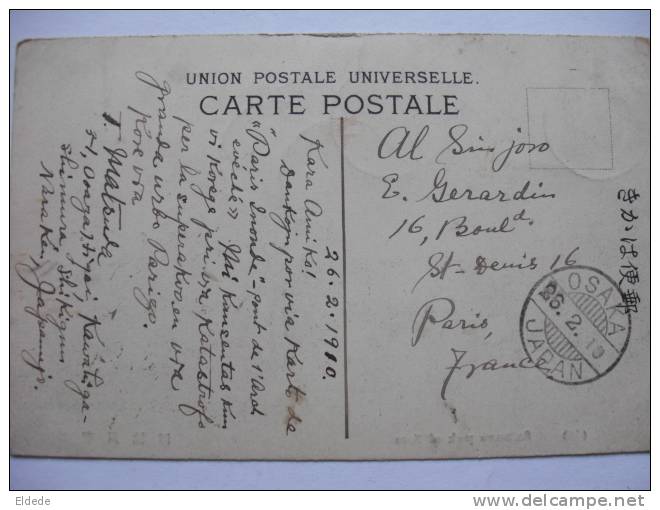 UNION POSTALE UNIVERSELLE.
CARTE POSTALE
26.2.1910.
Kara Amiko!
Dankojn por via karto de
"Paris Inondé" pont de l'Ard
evêché" Mi konsentas kun
vi korege pri via katastrofo
per la superakvo en via
granda urbo Parizo.
Kore via
T. Matsuda
Shimura, Shikigun
Naraken, Japanujo.
Al Sinjoro
E. Gerardin
16, Boul<sup>d</sup>
St-Denis 16
Paris,
France
きかは便郵
OSAKA
26.2.10
JAPAN
Eldede
delcampe.net